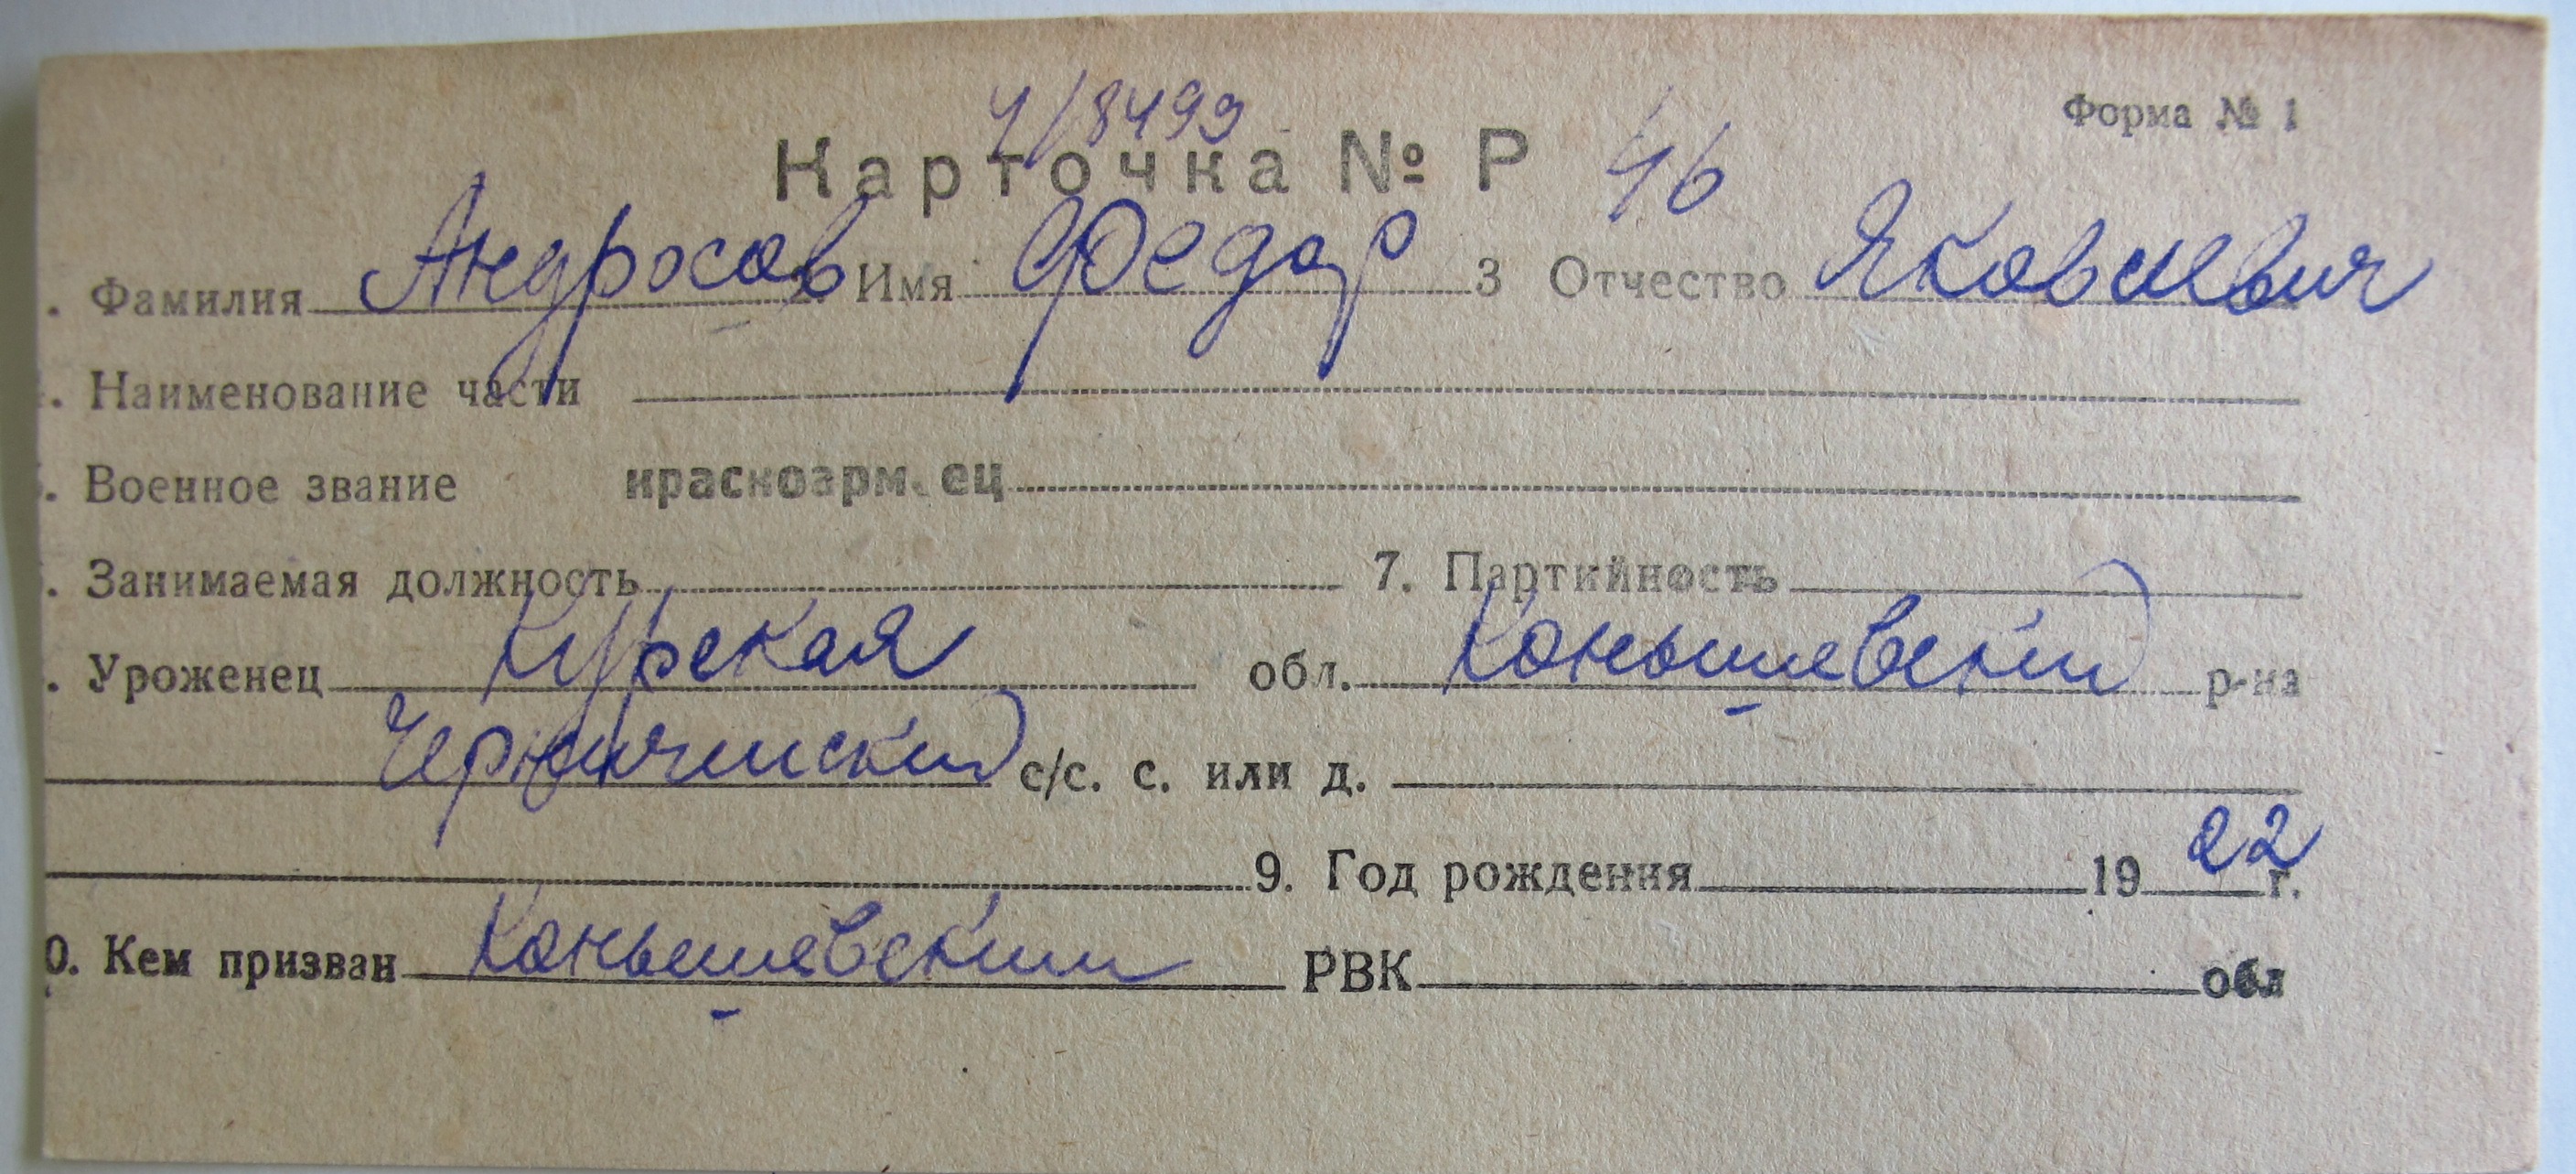 Форма № 1
4/8499
Карточка № Р 46
. Фамилия Андросов 2. Имя Федор 3 Отчество Яковлевич
. Наименование части
. Военное звание красноарм.ец
. Занимаемая должность 7. Партийность
. Уроженец Курская обл. Конышевский р-на
Черничинский с/с. с. или д.
9. Год рождения 1922 г.
0. Кем призван Конышевским РВК обл